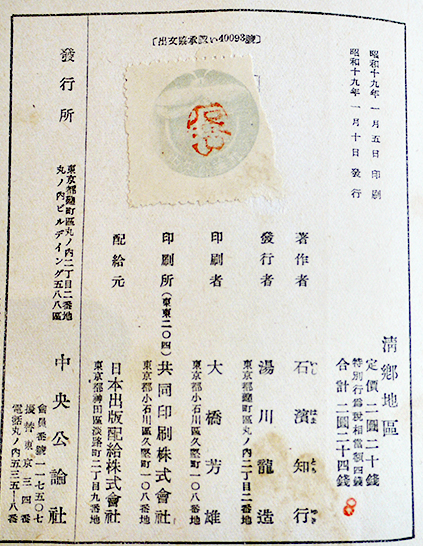 〔出文協承認い40093號〕
昭和十九年一月五日印刷
昭和十九年一月十日發行
清鄕地區
定價二圓二十錢
特別行爲稅相當額四錢
合計二圓二十四錢
著作者 石濱知行
いし はま とも ゆき
發行者 湯川龍造
東京都麴町區丸ノ內二丁目二番地
印刷者 大橋芳雄
東京都小石川區久堅町一〇八番地
印刷所(東東二〇四)共同印刷株式會社
東京都小石川區久堅町一〇八番地
配給元 日本出版配給株式會社
東京都神田區淡路町二丁目九番地
發行所
東京都麴町區丸ノ內二丁目二番地
丸ノ內ビルデイング五八八區
中央公論社
會員番號一一七五〇七
振替東京三四番
電話丸ノ內五三五一八番